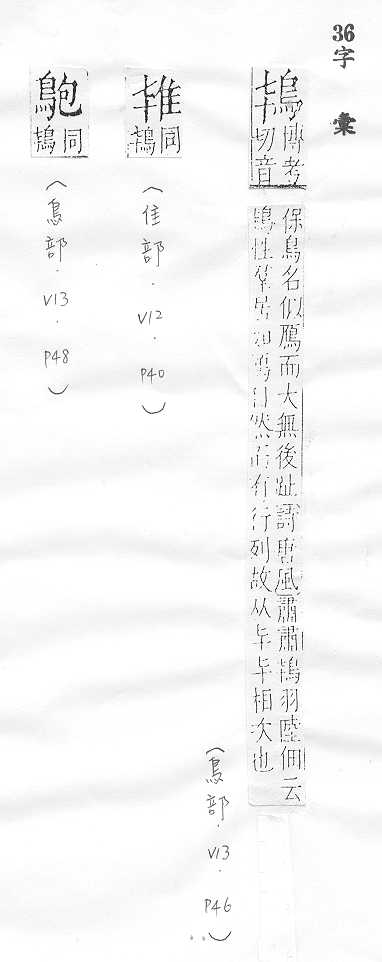 36字彙
鴇博考切音
保鳥名似鴈而大無後趾詩唐風肅肅鴇羽陸佃云
鴇性羣居如鴈自然而有行列故从𠂒𠂒相次也
（鳥部．V13．P46）
𨾏同鴇
（隹部．V12．P40）
鉋同鴇
（鳥部．V13．P48）